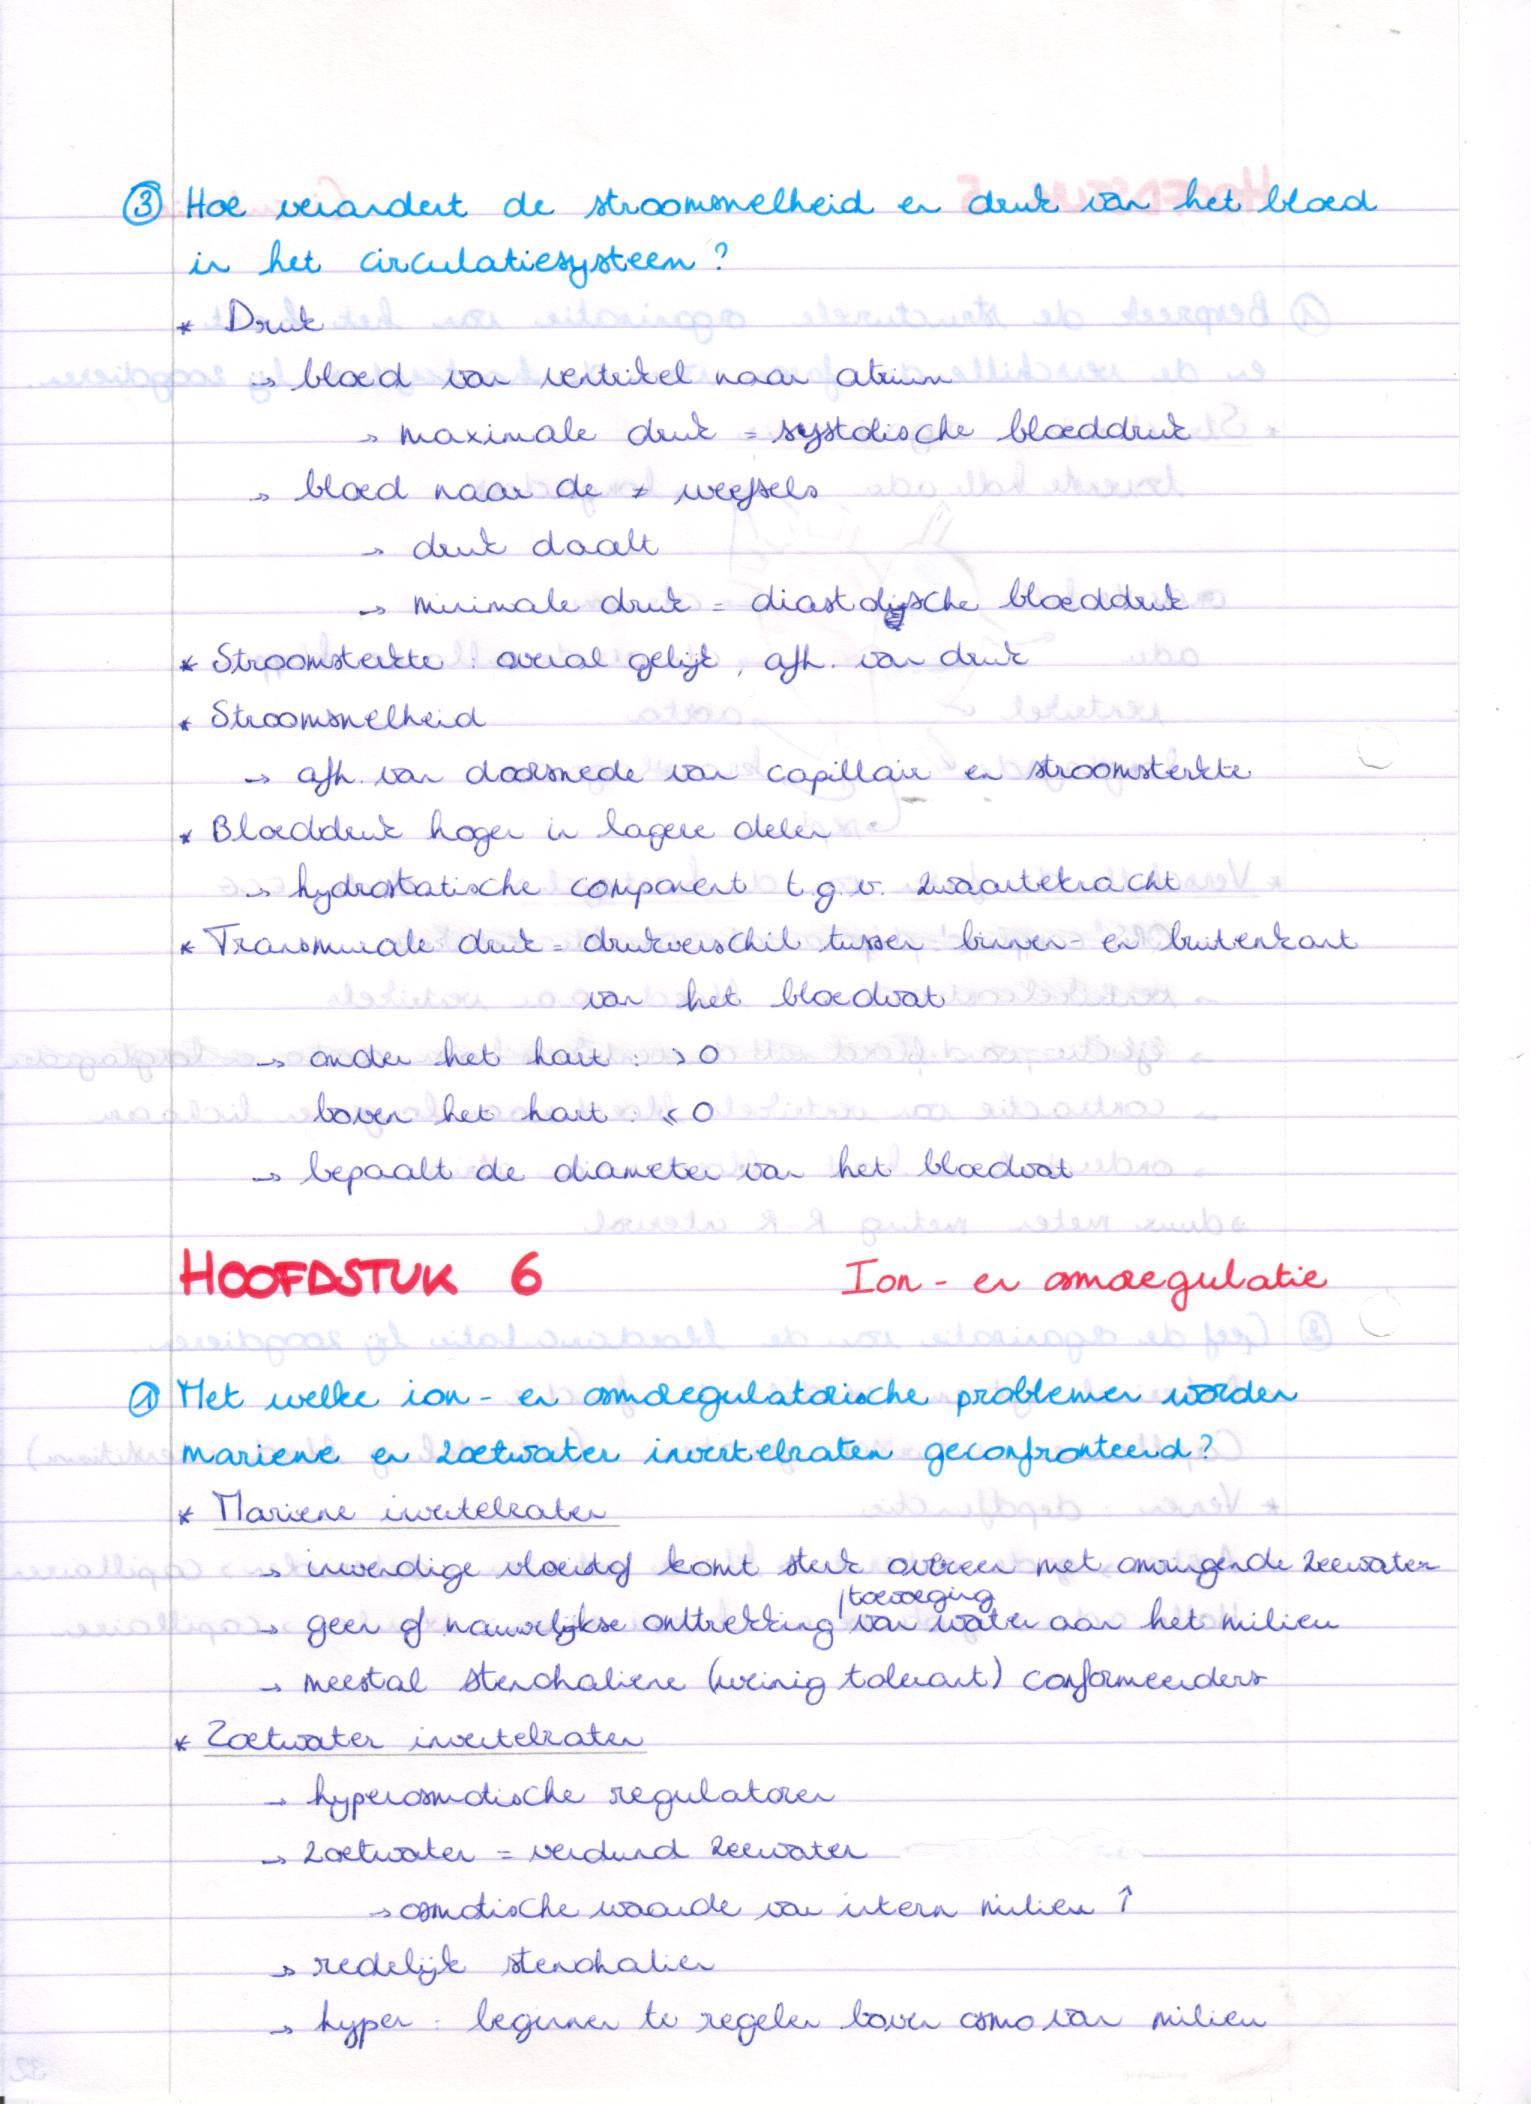 ③ Hoe verandert de stroomsnelheid en druk van het bloed
in het circulatiesysteem?
* Druk
→ bloed van ventrikel naar atrium
→ maximale druk = systolische bloeddruk
→ bloed naar de ≠ weefsels
→ druk daalt
→ minimale druk = diastolische bloeddruk
* Stroomsterkte : overal gelijk, afh. van druk
* Stroomsnelheid
→ afh. van doorsnede van capillair en stroomsterkte
* Bloeddruk hoger in lagere delen
→ hydrostatische component t.g.v. zwaartekracht
* Transmurale druk = drukverschil tussen binnen- en buitenkant
van het bloedvat
→ onder het hart : > 0
boven het hart : < 0
→ bepaalt de diameter van het bloedvat
HOOFDSTUK 6 Ion- en osmoregulatie
① Met welke ion- en osmoregulatorische problemen worden
mariene en zoetwater invertebraten geconfronteerd?
* Mariene invertebraten
→ inwendige vloeistof komt sterk overeen met omringende zeewater
/toevoeging
→ geen of nauwelijkse onttrekking van water aan het milieu
→ meestal stenohaliene (weinig tolerant) conformeerders
* Zoetwater invertebraten
→ hyperosmotische regulatoren
→ zoetwater = verdund zeewater
→ osmotische waarde van intern milieu ↑
→ redelijk stenohalien
→ hyper : beginnen te regelen boven osmo van milieu